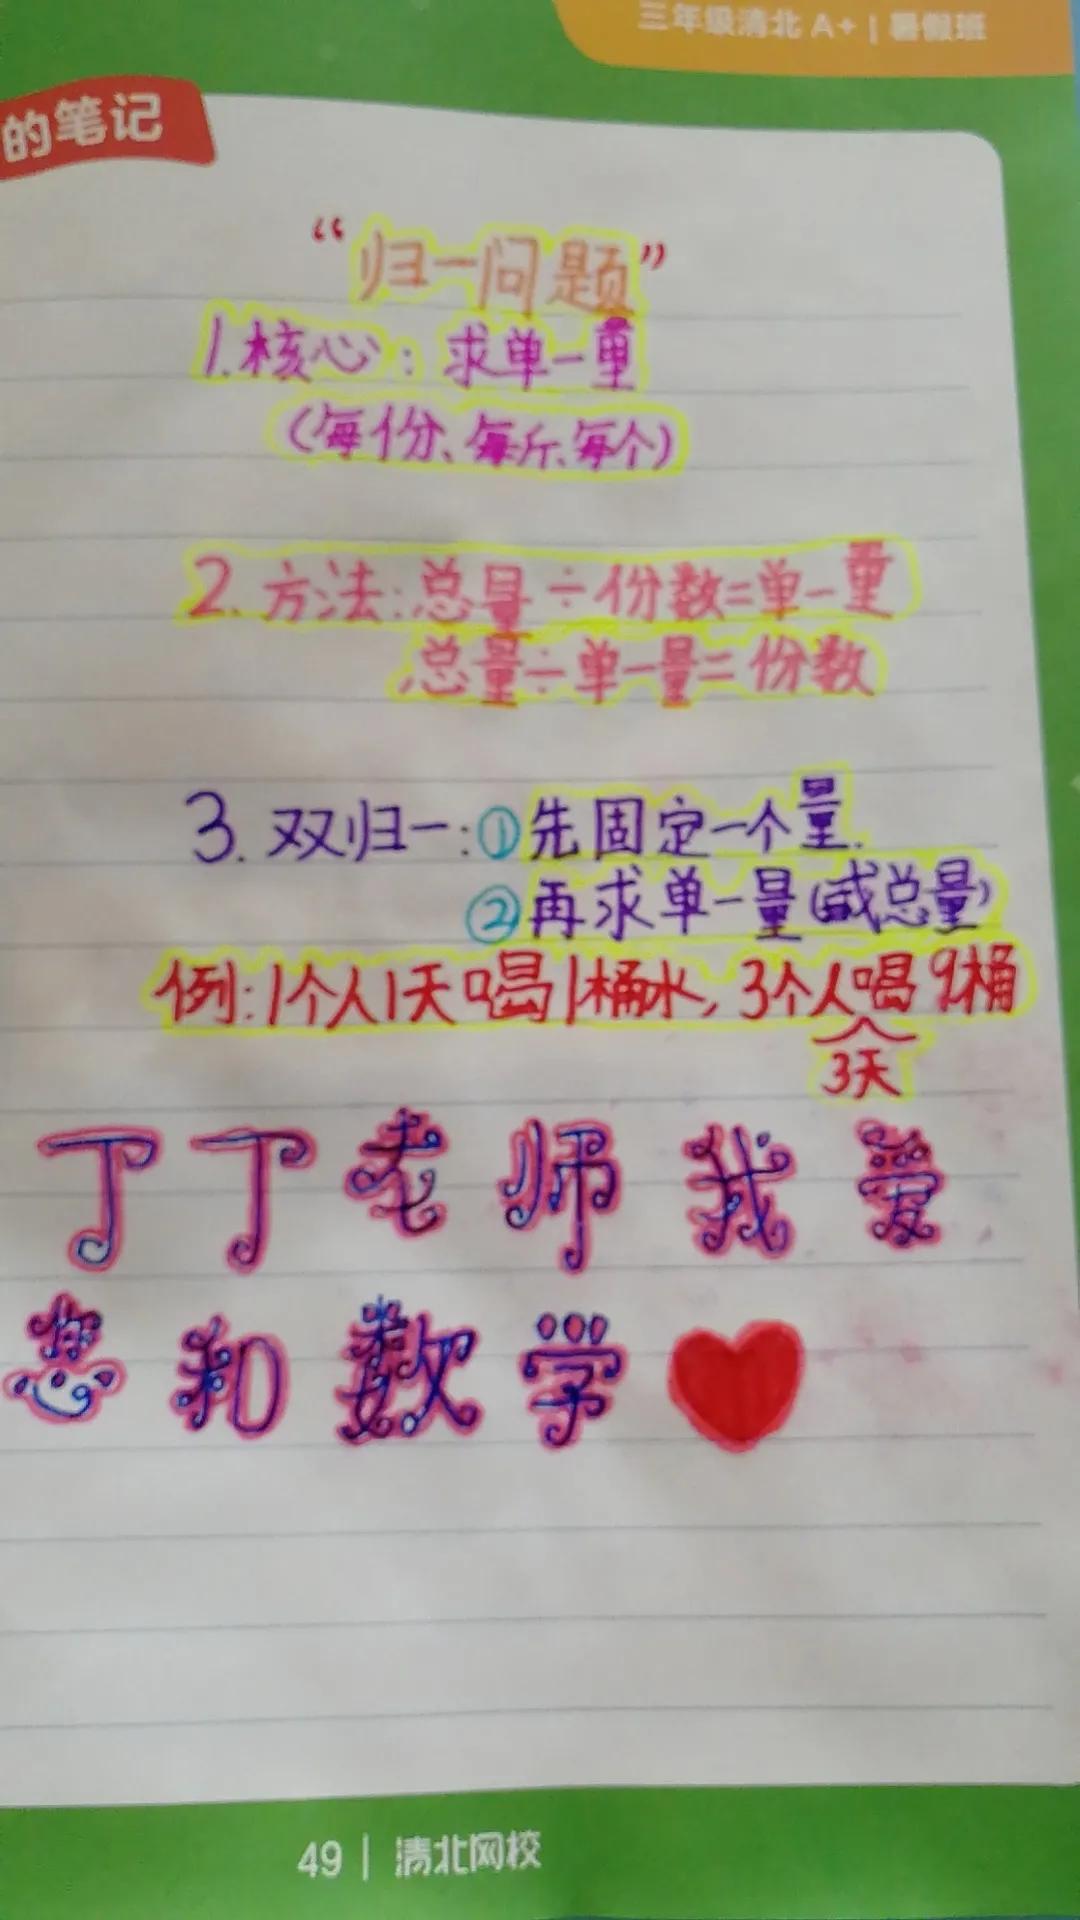 三年级清北 A+ | 暑假班
的笔记
“归一问题”
1.核心：求单一量
（每份、每斤、每个）
2.方法：总量÷份数=单一量
总量÷单一量=份数
3.双归一：①先固定一个量.
②再求单一量(或总量)
例：1个人1天喝1桶水，3个人喝9桶
3天
丁丁老师我爱
您和数学
49 | 清北网校